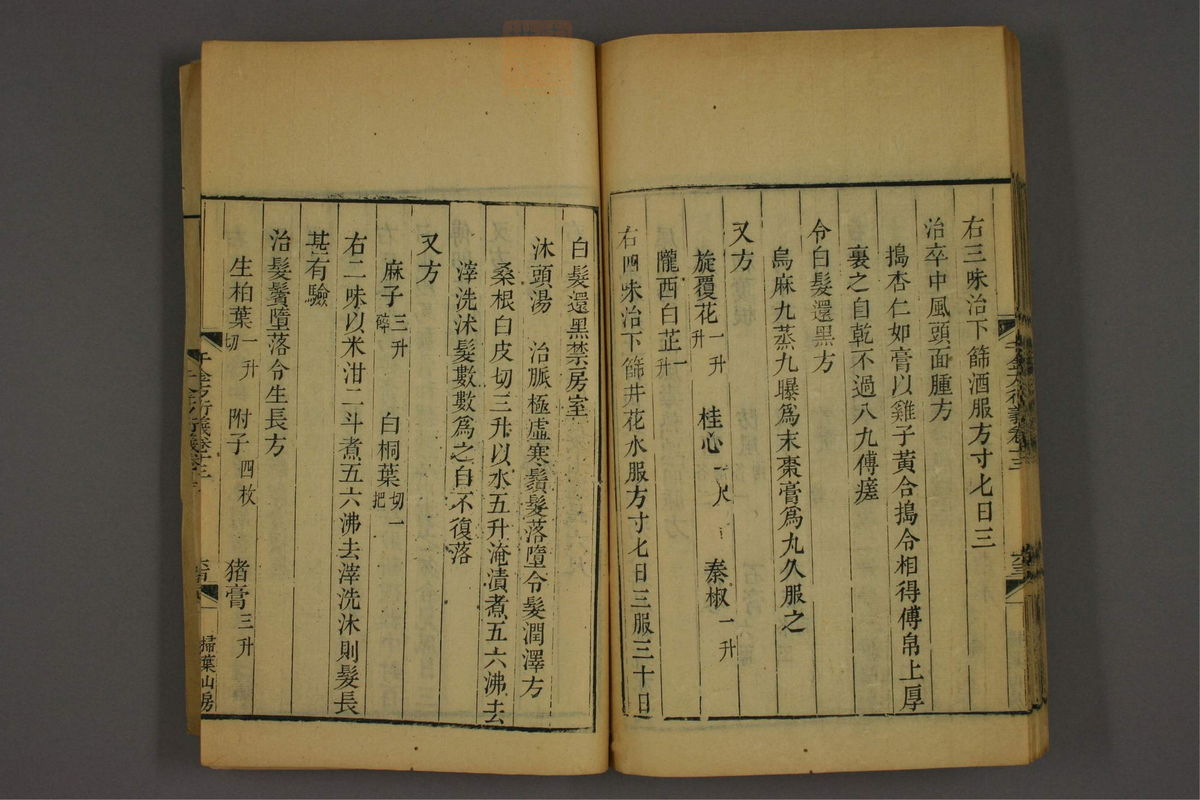 右三味治下篩酒服方寸七日三
治卒中風頭面腫方
搗杏仁如膏以雞子黃合搗令相得傅帛上厚
裹之自乾不過八九傅瘥
令白髮還黑方
烏麻九蒸九曝爲末棗膏爲丸久服之
又方
旋覆花一升 桂心一尺 秦椒一升
隴西白芷一升
右四味治下篩井花水服方寸七日三服三十日
白髮還黑禁房室
沐頭湯 治脈極虛寒鬚髮落墮令髮潤澤方
桑根白皮切三升以水五升淹漬煮五六沸去
滓洗沐髮數數爲之自不復落
又方
麻子三升碎 白桐葉切一把
右二味以米泔二斗煮五六沸去滓洗沐則髮長
甚有驗
治髮鬢墮落令生長方
生柏葉一升切 附子四枚 猪膏三升
掃葉山房